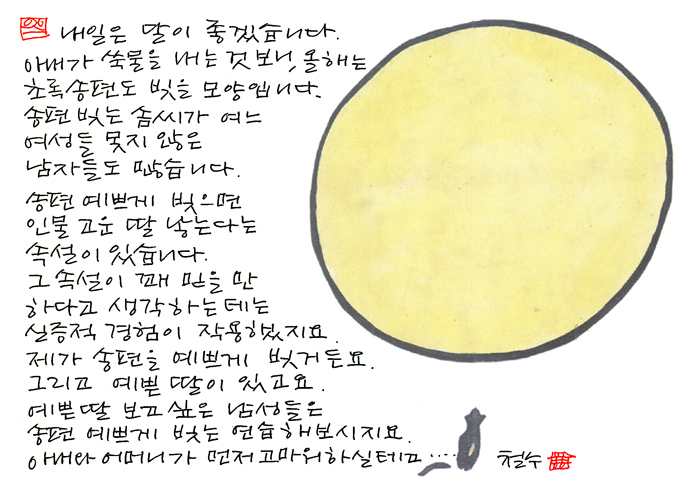 내일은 달이 좋겠습니다.
아내가 쑥물을 내는 것 보니, 올해는
초록송편도 빚을 모양입니다.
송편 빚는 솜씨가 여느
여성들 못지 않은
남자들도 많습니다.
송편 예쁘게 빚으면
인물 고운 딸 낳는다는
속설이 있습니다.
그 속설이 꽤 믿을 만
하다고 생각하는데는
실증적 경험이 작용했지요.
제가 송편을 예쁘게 빚거든요.
그리고 예쁜 딸이 있고요.
예쁜 딸 보고 싶은 남성들은
송편 예쁘게 빚는 연습해보시지요.
아내와 어머니가 먼저 고마워하실테고.....
철수